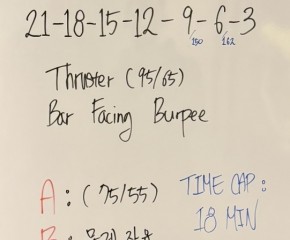 21-18-15-12-9-6-3
150 162
Thruster (95/65)
Bar Facing Burpee
A: (75/55)
TIME CAP:
18 MIN
B: